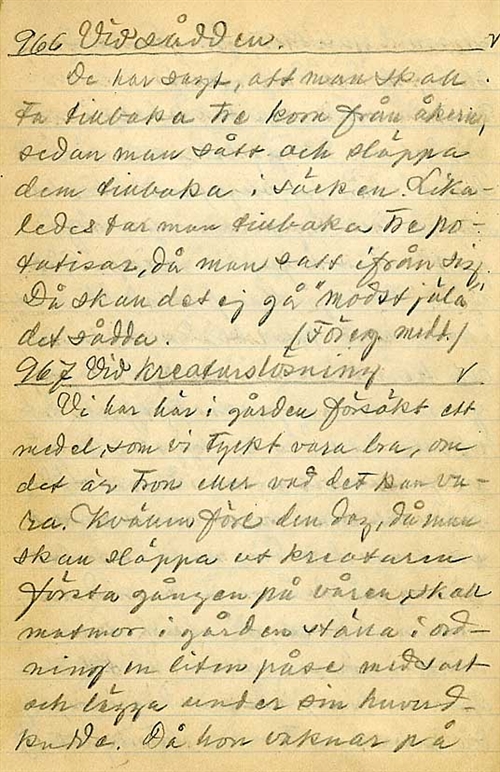 966 Vid sådden. v
De har sagt, att man skall
ta tillbaka tre korn från åkern,
sedan man sått och släppa
dem tillbaka i säcken. Lika-
ledes tar man tillbaka tre po-
tatisar, då man satt ifrån sig.
Då skall det ej gå "modstjäla"
det sådda. (Föreg. medd.)
967 Vid kreaturslösning v
Vi har här i gården försökt ett
medel, som vi tyckt vara bra, om
det är tron eller vad det kan va-
ra. Kvällen före den dag, då man
skall släppa ut kreaturen
första gången på våren, skall
matmor i gården ställa i ord-
ning en liten påse med salt
och lägga under sin huvud-
kudde. Då hon vaknar på